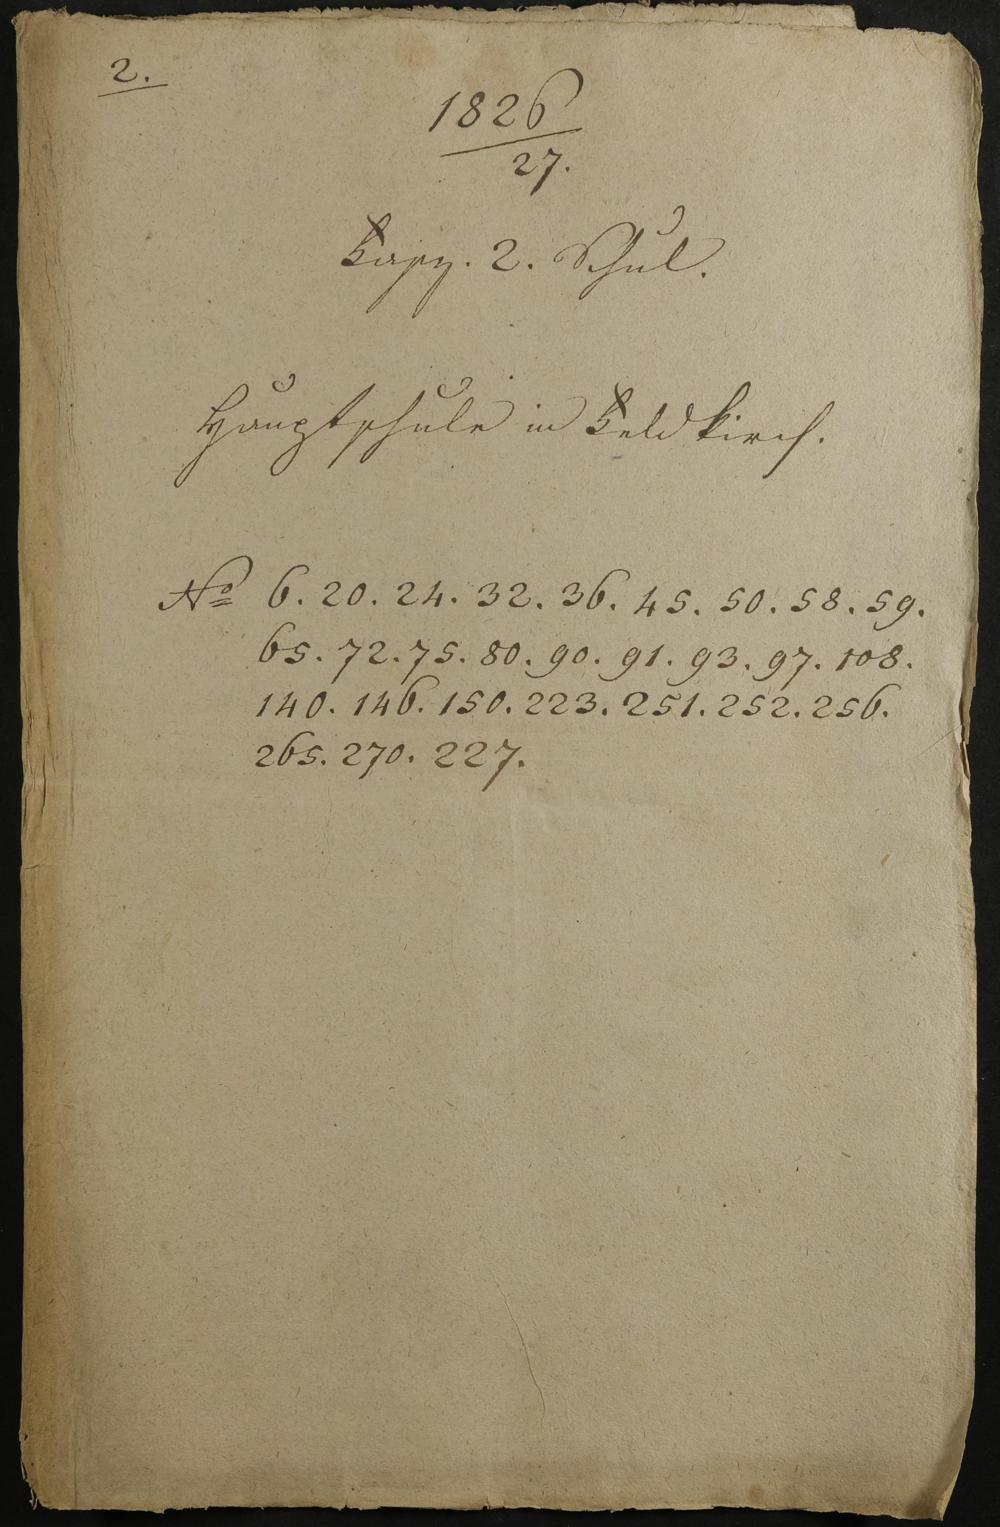 2.
1826
27.
Fasz. 2. Schul.
Hauptschule in Feldkirch.
No 6. 20. 24. 32. 36. 45. 50. 58. 59.
65. 72. 75. 80. 90. 91. 93. 97. 108.
140. 146. 150. 223. 251. 252. 256.
265. 270. 227.